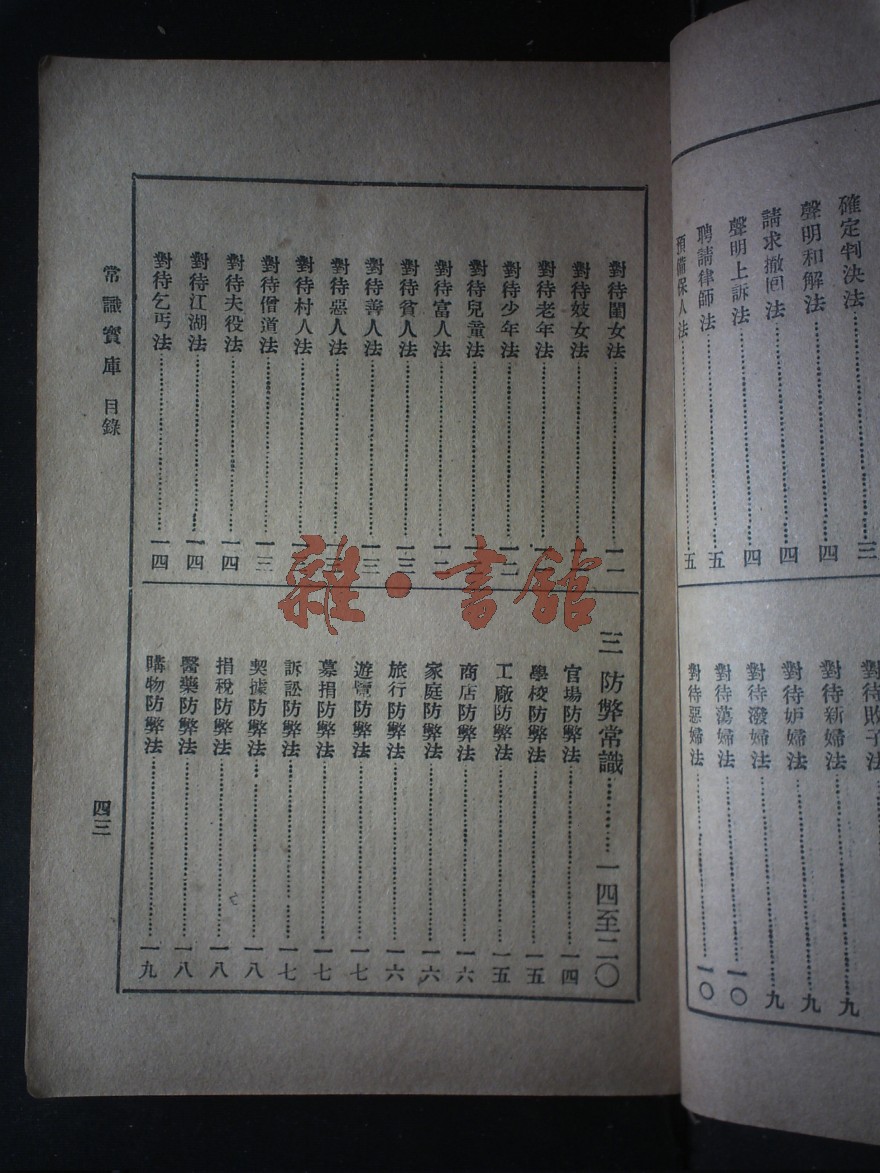 確定判決法……三
聲明和解法……四
請求撤回法……四
聲明上訴法……四
聘請律師法……五
預備保人法……五
對待敗子法
對待新婦法……九
對待妒婦法……九
對待潑婦法……九
對待蕩婦法……一〇
對待惡婦法……一〇
對待閨女法……一一
對待妓女法
對待老年法
對待少年法……一二
對待兒童法
對待富人法……一二
對待貧人法……一三
對待善人法……一三
對待惡人法……一三
對待村人法
對待僧道法……一三
對待夫役法……一四
對待江湖法……一四
對待乞丐法……一四
三 防弊常識……一四至二〇
官場防弊法……一四
學校防弊法……一五
工廠防弊法……一五
商店防弊法……一六
家庭防弊法……一六
旅行防弊法……一六
遊覽防弊法……一七
募捐防弊法……一七
訴訟防弊法……一七
契據防弊法……一八
捐稅防弊法……一八
醫藥防弊法……一八
購物防弊法……一九
常識寶庫 目錄
四三
雜·書館